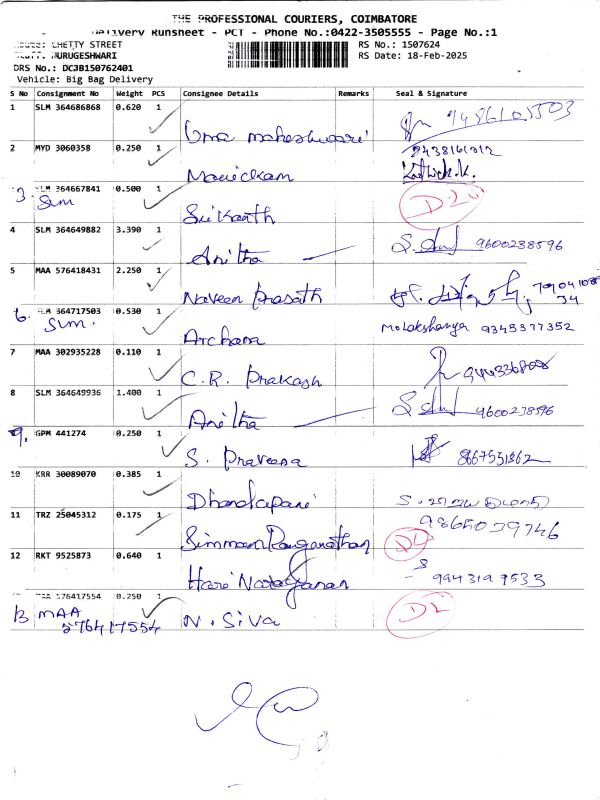 THE PROFESSIONAL COURIERS, COIMBATORE
Delivery Runsheet - PCT - Phone No.:0422-3505555 - Page No.:1
CHETTY STREET RS No.: 1507624
MURUGESHWARI RS Date: 18-Feb-2025
DRS No.: DCJB150762401
Vehicle: Big Bag Delivery
S No Consignment No Weight PCS Consignee Details Remarks Seal & Signature
1 SLM 364686868 0.620 1 Uma maheshwari
2 MYD 3060358 0.250 1 Manickam Karthick.K.
3. SLM 364667841 0.500 1 Srikanth
SLM
4 SLM 364649882 3.390 1 Anitha 9600238596
5 MAA 576418431 2.250 1 Naveen Prasath
6. SLM 364717503 0.530 1 Archana 9345377352
SLM.
7 MAA 302935228 0.110 1 C.R. Prakash
8 SLM 364649936 1.400 1 Anitha 9600238596
9. GPM 441274 0.250 1 S. Praveena 8667531862
10 KRR 30089070 0.385 1 Dhandapani
11 TRZ 25045312 0.175 1 9865039746
12 RKT 9525873 0.640 1 Hari Narayanan 9943197533
MAA 576417554 0.250 1 N. Siva
13 MAA
576417554